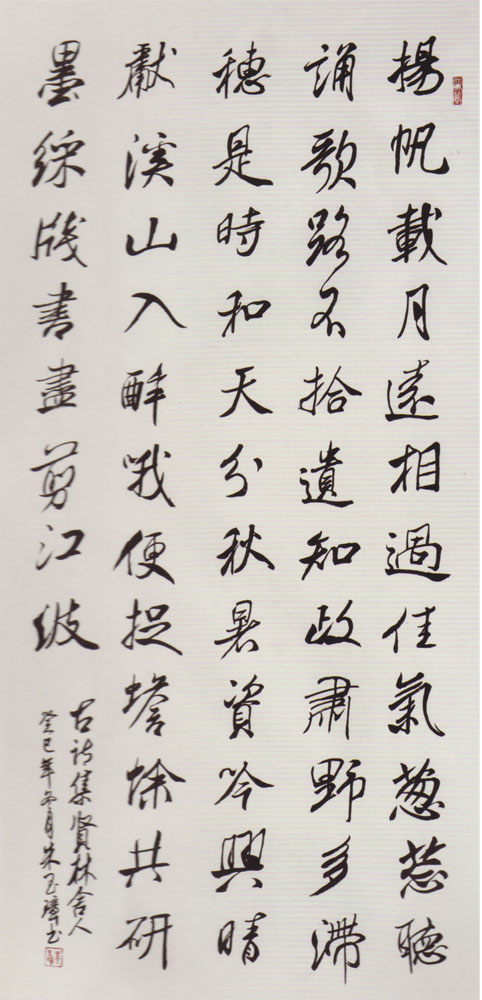 揚帆載月遠相過佳氣葱葱聽
誦歌路不拾遺知政肅野多滯
穗是時和天分秋暑資吟興晴
獻溪山入醉哦便捉蟾蜍共研
墨綵牋書盡剪江波
古詩集賢林舍人
癸巳年冬月朱玉璋书